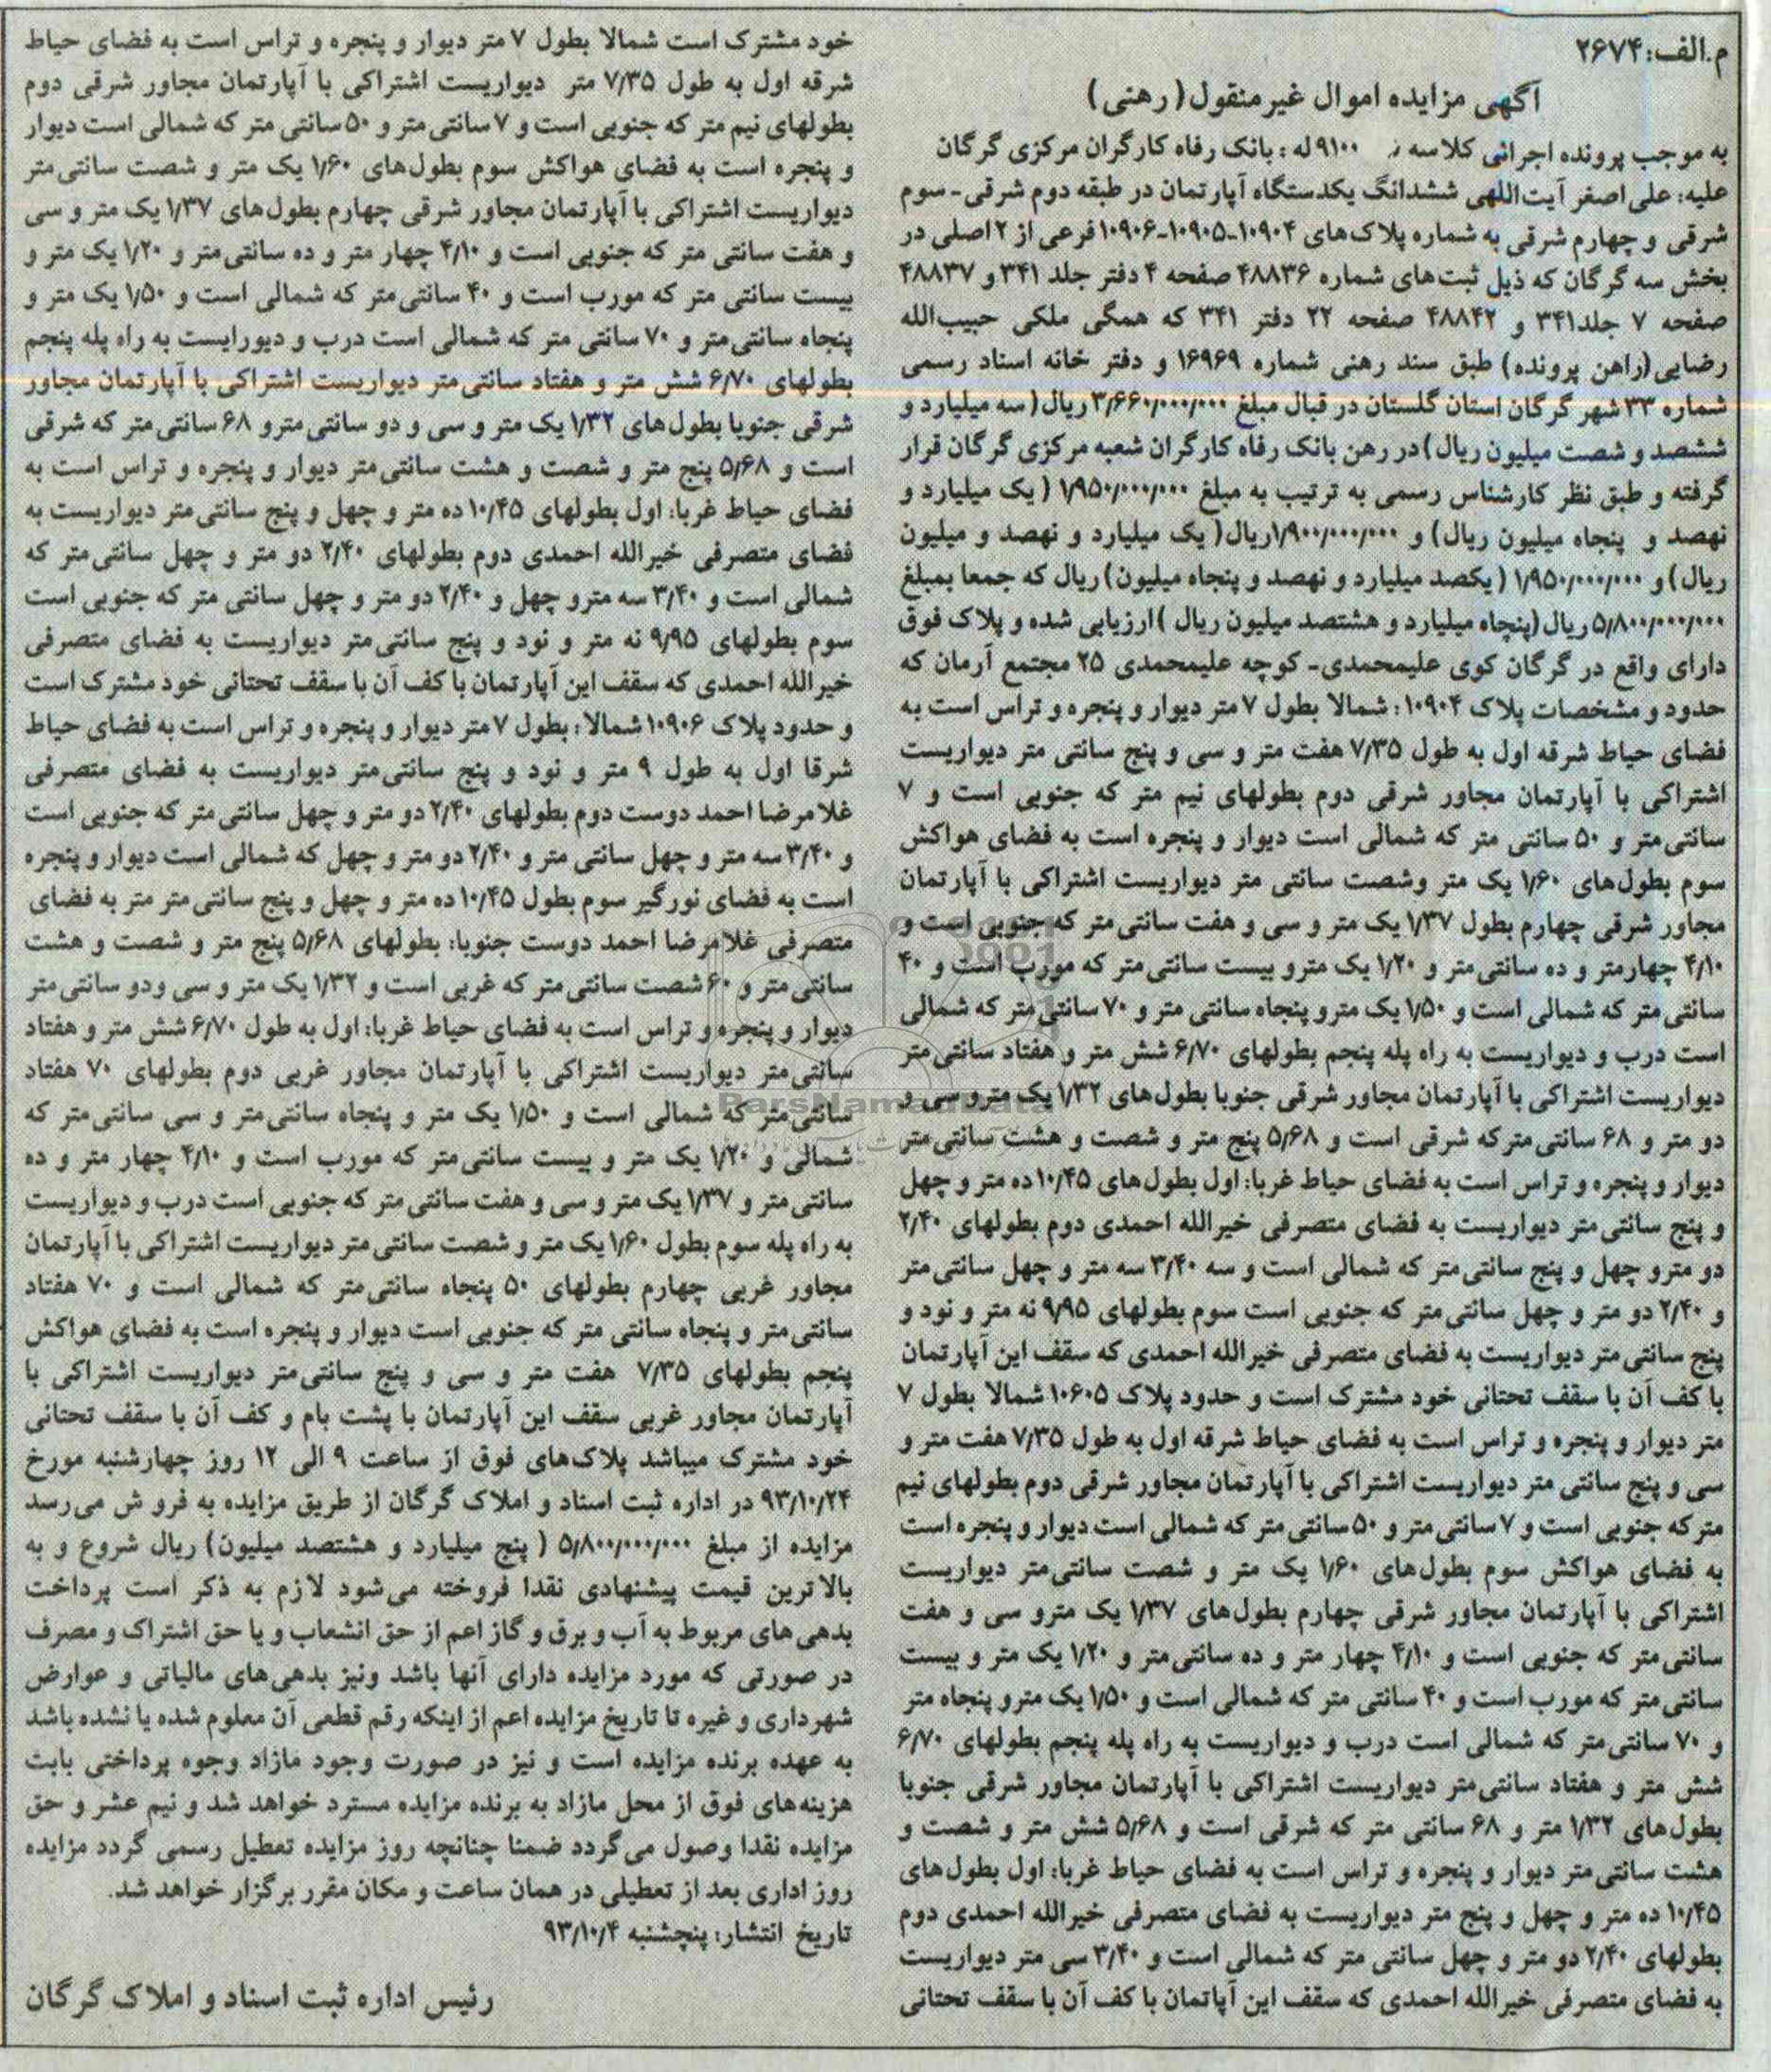 م.الف:۲۶۷۴
آگهی مزایده اموال غیرمنقول(رهنی)
به موجب پرونده اجرائی کلاسه ۹۱۰۰ له : بانک رفاه کارگران مرکزی گرگان
علیه: علی اصغر آیت‌اللهی ششدانگ یکدستگاه آپارتمان در طبقه دوم شرقی- سوم
شرقی و چهارم شرقی به شماره پلاک‌های ۱۰۹۰۴-۱۰۹۰۵-۱۰۹۰۶ فرعی از ۲ اصلی در
بخش سه گرگان که ذیل ثبت‌های شماره ۴۸۸۳۶ صفحه ۴ دفتر جلد ۳۴۱ و ۴۸۸۳۷
صفحه ۷ جلد۳۴۱ و ۴۸۸۴۲ صفحه ۲۲ دفتر ۳۴۱ که همگی ملکی حبیب‌الله
رضایی(راهن پرونده) طبق سند رهنی شماره ۱۶۹۶۹ و دفتر خانه اسناد رسمی
شماره ۳۳ شهر گرگان استان گلستان در قبال مبلغ ۳٫۶۶۰٫۰۰۰٫۰۰۰ ریال( سه میلیارد و
ششصد و شصت میلیون ریال) در رهن بانک رفاه کارگران شعبه مرکزی گرگان قرار
گرفته و طبق نظر کارشناس رسمی به ترتیب به مبلغ ۱٫۹۵۰٫۰۰۰٫۰۰۰ ( یک میلیارد و
نهصد و پنجاه میلیون ریال) و ۱٫۹۰۰٫۰۰۰٫۰۰۰ریال( یک میلیارد و نهصد و میلیون
ریال) و ۱٫۹۵۰٫۰۰۰٫۰۰۰ ( یکصد میلیارد و نهصد و پنجاه میلیون) ریال که جمعا بمبلغ
۵٫۸۰۰٫۰۰۰٫۰۰۰ ریال (پنجاه میلیارد و هشتصد میلیون ریال ) ارزیابی شده و پلاک فوق
دارای واقع در گرگان کوی علیمحمدی- کوچه علیمحمدی ۲۵ مجتمع آرمان که
حدود و مشخصات پلاک ۱۰۹۰۴ : شمالا بطول ۷ متر دیوار و پنجره و تراس است به
فضای حیاط شرقه اول به طول ۷٫۳۵ هفت متر و سی و پنج سانتی متر دیواریست
اشتراکی با آپارتمان مجاور شرقی دوم بطولهای نیم متر که جنوبی است و ۷
سانتی‌متر و ۵۰ سانتی متر که شمالی است دیوار و پنجره است به فضای هواکش
سوم بطول‌های ۱٫۶۰ یک متر وشصت سانتی متر دیواریست اشتراکی با آپارتمان
مجاور شرقی چهارم بطول ۱٫۳۷ یک متر و سی و هفت سانتی‌متر که جنوبی است و
۴٫۱۰ چهارمتر و ده سانتی‌متر و ۱٫۲۰ یک مترو بیست سانتی‌متر که مورب است و ۴۰
سانتی‌متر که شمالی است و ۱٫۵۰ یک مترو پنجاه سانتی متر و ۷۰ سانتی‌متر که شمالی
است درب و دیواریست به راه پله پنجم بطولهای ۶٫۷۰ شش متر و هفتاد سانتی‌متر
دیواریست اشتراکی با آپارتمان مجاور شرقی جنوبا بطول‌های ۱٫۳۲ یک مترو سی و
دو متر و ۶۸ سانتی‌مترکه شرقی است و ۵٫۶۸ پنج متر و شصت و هشت سانتی‌متر
دیوار و پنجره و تراس است به فضای حیاط غربا: اول بطول‌های ۱۰٫۴۵ ده متر و چهل
و پنج سانتی متر دیواریست به فضای متصرفی خیرالله احمدی دوم بطولهای ۲٫۴۰
دو مترو چهل و پنج سانتی‌متر که شمالی است و سه ۳٫۴۰ سه متر و چهل سانتی‌متر
و ۲٫۴۰ دو متر و چهل سانتی‌متر که جنوبی است سوم بطولهای ۹٫۹۵ نه متر و نود و
پنج سانتی‌متر دیواریست به فضای متصرفی خیرالله احمدی که سقف این آپارتمان
با کف آن با سقف تحتانی خود مشترک است و حدود پلاک ۱۰۶۰۵ شمالا بطول ۷
متر دیوار و پنجره و تراس است به فضای حیاط شرقه اول به طول ۷٫۳۵ هفت متر و
سی و پنج سانتی متر دیواریست اشتراکی با آپارتمان مجاور شرقی دوم بطولهای نیم
مترکه جنوبی است و ۷ سانتی‌متر و ۵۰ سانتی‌متر که شمالی است دیوار و پنجره است
به فضای هواکش سوم بطول‌های ۱٫۶۰ یک متر و شصت سانتی‌متر دیواریست
اشتراکی با آپارتمان مجاور شرقی چهارم بطول‌های ۱٫۳۷ یک مترو سی و هفت
سانتی‌متر که جنوبی است و ۴٫۱۰ چهار متر و ده سانتی‌متر و ۱٫۲۰ یک متر و بیست
سانتی‌متر که مورب است و ۴۰ سانتی متر که شمالی است و ۱٫۵۰ یک مترو پنجاه متر
و ۷۰ سانتی‌متر که شمالی است درب و دیواریست به راه پله پنجم بطولهای ۶٫۷۰
شش متر و هفتاد سانتی‌متر دیواریست اشتراکی با آپارتمان مجاور شرقی جنوبا
بطول‌های ۱٫۳۲ متر و ۶۸ سانتی متر که شرقی است و ۵٫۶۸ شش متر و شصت و
هشت سانتی‌متر دیوار و پنجره و تراس است به فضای حیاط غربا: اول بطول‌های
۱۰٫۴۵ ده متر و چهل و پنج متر دیواریست به فضای متصرفی خیرالله احمدی دوم
بطولهای ۲٫۴۰ دو متر و چهل سانتی متر که شمالی است و ۳٫۴۰ سی متر دیواریست
به فضای متصرفی خیرالله احمدی که سقف این آپاتمان با کف آن با سقف تحتانی
خود مشترک است شمالا بطول ۷ متر دیوار و پنجره و تراس است به فضای حیاط
شرقه اول به طول ۷٫۳۵ متر دیواریست اشتراکی با آپارتمان مجاور شرقی دوم
بطولهای نیم متر که جنوبی است و ۷ سانتی متر و ۵۰ سانتی متر که شمالی است دیوار
و پنجره است به فضای هواکش سوم بطول‌های ۱٫۶۰ یک متر و شصت سانتی‌متر
دیواریست اشتراکی با آپارتمان مجاور شرقی چهارم بطول‌های ۱٫۳۷ یک متر و سی
و هفت سانتی متر که جنوبی است و ۴٫۱۰ چهار متر و ده سانتی‌متر و ۱٫۲۰ یک متر و
بیست سانتی متر که مورب است و ۴۰ سانتی‌متر که شمالی است و ۱٫۵۰ یک متر و
پنجاه سانتی‌متر و ۷۰ سانتی متر که شمالی است درب و دیورایست به راه پله پنجم
بطولهای ۶٫۷۰ شش متر و هفتاد سانتی‌متر دیواریست اشتراکی با آپارتمان مجاور
شرقی جنوبا بطول‌های ۱٫۳۲ یک متر و سی و دو سانتی مترو ۶۸ سانتی‌متر که شرقی
است و ۵٫۶۸ پنج متر و شصت و هشت سانتی‌متر دیوار و پنجره و تراس است به
فضای حیاط غربا: اول بطولهای ۱۰٫۴۵ ده متر و چهل و پنج سانتی‌متر دیواریست به
فضای متصرفی خیرالله احمدی دوم بطولهای ۲٫۴۰ دو متر و چهل سانتی‌متر که
شمالی است و ۳٫۴۰ سه مترو چهل و ۲٫۴۰ دو متر و چهل سانتی متر که جنوبی است
سوم بطولهای ۹٫۹۵ نه متر و نود و پنج سانتی‌متر دیواریست به فضای متصرفی
خیرالله احمدی که سقف این آپارتمان با کف آن با سقف تحتانی خود مشترک است
و حدود پلاک ۱۰۹۰۶ شمالا: بطول ۷ متر دیوار و پنجره و تراس است به فضای حیاط
شرقا اول به طول ۹ متر و نود و پنج سانتی‌متر دیواریست به فضای متصرفی
غلامرضا احمد دوست دوم بطولهای ۲٫۴۰ دو متر و چهل سانتی متر که جنوبی است
و ۳٫۴۰ سه متر و چهل سانتی متر و ۲٫۴۰ دو متر و چهل که شمالی است دیوار و پنجره
است به فضای نورگیر سوم بطول ۱۰٫۴۵ ده متر و چهل و پنج سانتی متر متر به فضای
متصرفی غلامرضا احمد دوست جنوبا: بطولهای ۵٫۶۸ پنج متر و شصت و هشت
سانتی متر و ۶۰ شصت سانتی‌متر که غربی است و ۱٫۳۲ یک متر و سی ودو سانتی متر
دیوار و پنجره و تراس است به فضای حیاط غربا: اول به طول ۶٫۷۰ شش متر و هفتاد
سانتی‌متر دیواریست اشتراکی با آپارتمان مجاور غربی دوم بطولهای ۷۰ هفتاد
سانتی‌متر که شمالی است و ۱٫۵۰ یک متر و پنجاه سانتی‌متر و سی سانتی‌متر که
شمالی و ۱٫۲۰ یک متر و بیست سانتی‌متر که مورب است و ۴٫۱۰ چهار متر و ده
سانتی متر و ۱٫۳۷ یک متر و سی و هفت سانتی متر که جنوبی است درب و دیواریست
به راه پله سوم بطول ۱٫۶۰ یک متر و شصت سانتی متر دیواریست اشتراکی با آپارتمان
مجاور غربی چهارم بطولهای ۵۰ پنجاه سانتی‌متر که شمالی است و ۷۰ هفتاد
سانتی متر و پنجاه سانتی متر که جنوبی است دیوار و پنجره است به فضای هواکش
پنجم بطولهای ۷٫۳۵ هفت متر و سی و پنج سانتی‌متر دیواریست اشتراکی با
آپارتمان مجاور غربی سقف این آپارتمان با پشت بام و کف آن با سقف تحتانی
خود مشترک میباشد پلاک‌های فوق از ساعت ۹ الی ۱۲ روز چهارشنبه مورخ
۹۳/۱۰/۲۴ در اداره ثبت اسناد و املاک گرگان از طریق مزایده به فرو ش می‌رسد
مزایده از مبلغ ۵٫۸۰۰٫۰۰۰٫۰۰۰ ( پنج میلیارد و هشتصد میلیون) ریال شروع و به
بالاترین قیمت پیشنهادی نقدا فروخته می‌شود لازم به ذکر است پرداخت
بدهی های مربوط به آب و برق و گاز اعم از حق انشعاب و یا حق اشتراک و مصرف
در صورتی که مورد مزایده دارای آنها باشد ونیز بدهی‌های مالیاتی و عوارض
شهرداری و غیره تا تاریخ مزایده اعم از اینکه رقم قطعی آن معلوم شده یا نشده باشد
به عهده برنده مزایده است و نیز در صورت وجود مازاد وجوه پرداختی بابت
هزینه‌های فوق از محل مازاد به برنده مزایده مسترد خواهد شد و نیم عشر و حق
مزایده نقدا وصول می‌گردد ضمنا چنانچه روز مزایده تعطیل رسمی گردد مزایده
روز اداری بعد از تعطیلی در همان ساعت و مکان مقرر برگزار خواهد شد.
تاریخ انتشار: پنجشنبه ۹۳/۱۰/۴
رئیس اداره ثبت اسناد و املاک گرگان
ParsNamadData